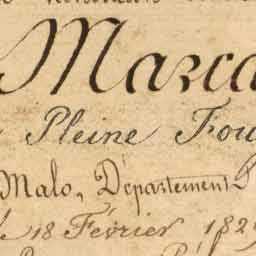 Marca
Pleine Fou
Malo, Département
le 18 Février 182